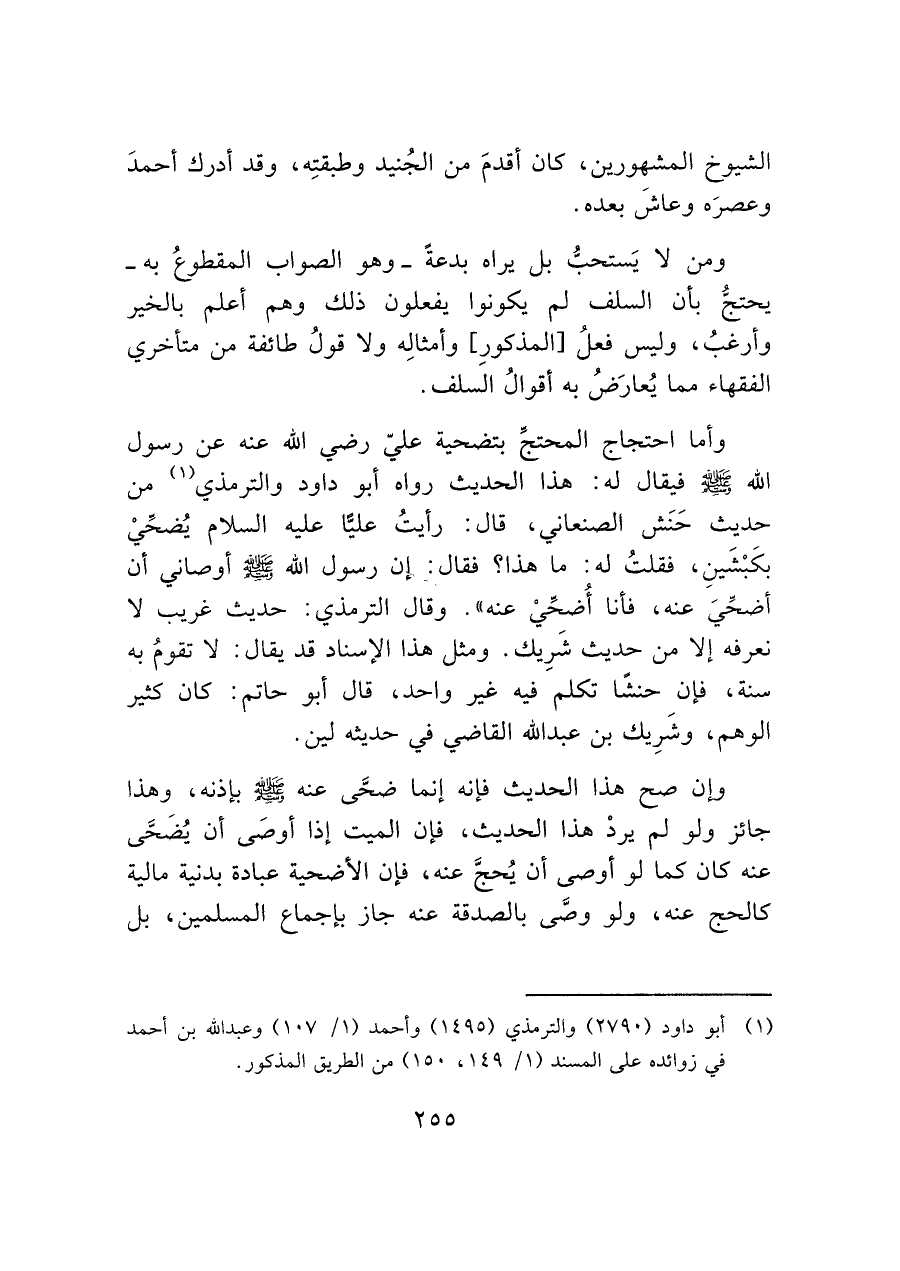 الشيوخ المشهورين، كان أقدمَ من الجُنيد وطبقتِه، وقد أدرك أحمدَ
وعصرَه وعاشَ بعده.
ومن لا يَستحبُّ بل يراه بدعةً ـ وهو الصواب المقطوعُ به ـ
يحتجُّ بأن السلف لم يكونوا يفعلون ذلك وهم أعلم بالخير
وأرغبُ، وليس فعلُ [المذكورِ] وأمثالِه ولا قولُ طائفة من متأخري
الفقهاء مما يُعارَضُ به أقوالُ السلف.
وأما احتجاج المحتجِّ بتضحية عليّ رضي الله عنه عن رسول
الله ﷺ فيقال له: هذا الحديث رواه أبو داود والترمذي(١) من
حديث حَنَش الصنعاني، قال: رأيتُ عليًّا عليه السلام يُضحِّيْ
بكَبْشَينِ، فقلتُ له: ما هذا؟ فقال: إن رسول الله ﷺ أوصاني أن
أضحِّيَ عنه، فأنا أُضحِّيْ عنه». وقال الترمذي: حديث غريب لا
نعرفه إلا من حديث شَرِيك. ومثل هذا الإسناد قد يقال: لا تقومُ به
سنة، فإن حنشًا تكلم فيه غير واحد، قال أبو حاتم: كان كثير
الوهم، وشَرِيك بن عبدالله القاضي في حديثه لين.
وإن صح هذا الحديث فإنه إنما ضحَّى عنه ﷺ بإذنه، وهذا
جائز ولو لم يردْ هذا الحديث، فإن الميت إذا أوصَى أن يُضَحَّى
عنه كان كما لو أوصى أن يُحجَّ عنه، فإن الأضحية عبادة بدنية مالية
كالحج عنه، ولو وصَّى بالصدقة عنه جاز بإجماع المسلمين، بل
(١) أبو داود (٢٧٩٠) والترمذي (١٤٩٥) وأحمد (١/ ١٠٧) وعبدالله بن أحمد
في زوائده على المسند (١/ ١٤٩، ١٥٠) من الطريق المذكور.
٢٥٥